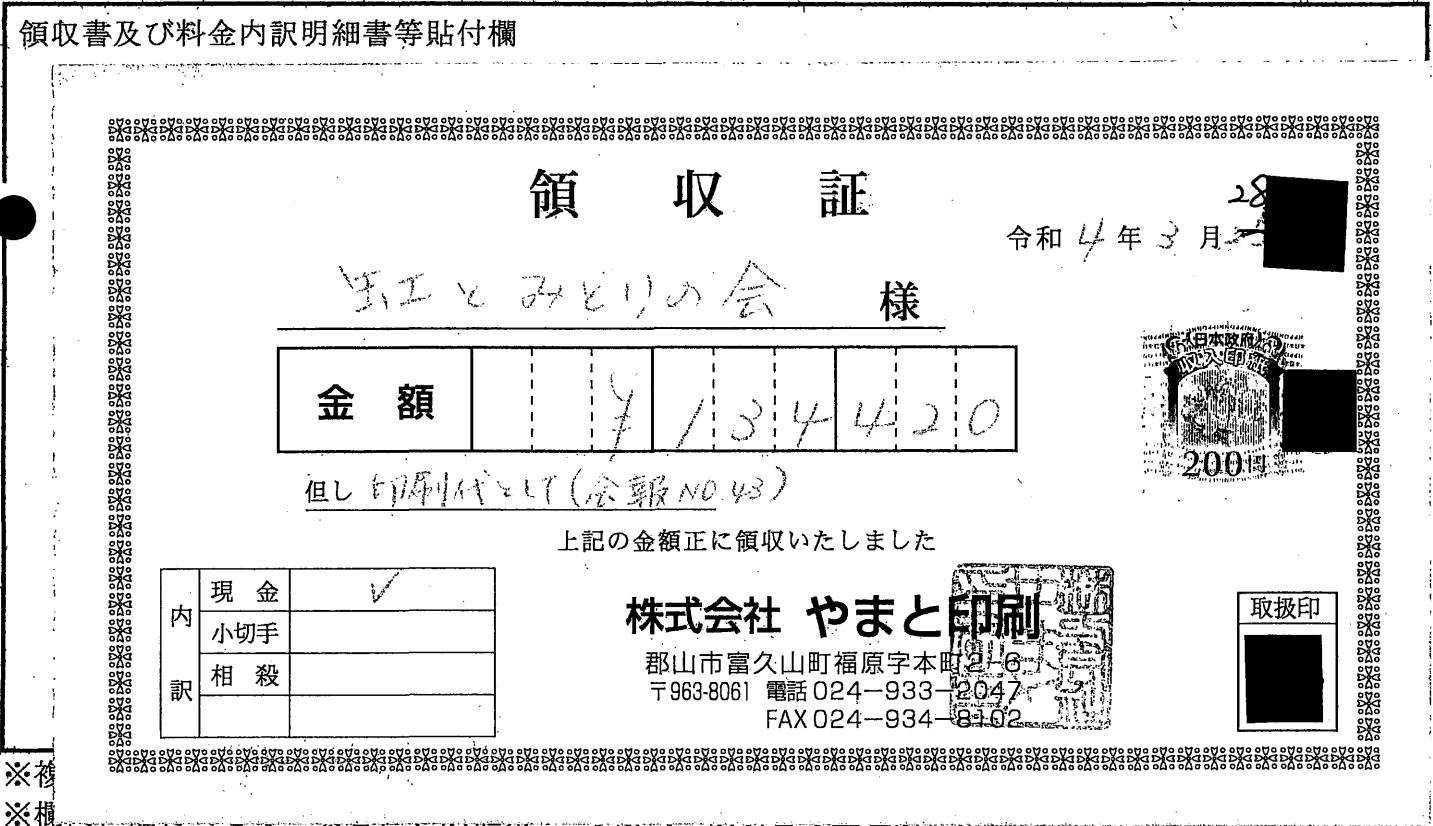 領収書及び料金内訳明細書等貼付欄
領収証
令和4年3月28
虹とみどりの会 様
金額 ¥134420
但し 印刷代として(会報NO.43)
上記の金額正に領収いたしました
日本政府
収入印紙
200円
内訳
現金 ✓
小切手
相殺
株式会社 やまと印刷
郡山市富久山町福原字本町2-6
〒963-8061 電話024-933-2047
FAX024-934-8102
取扱印
※複
※欄